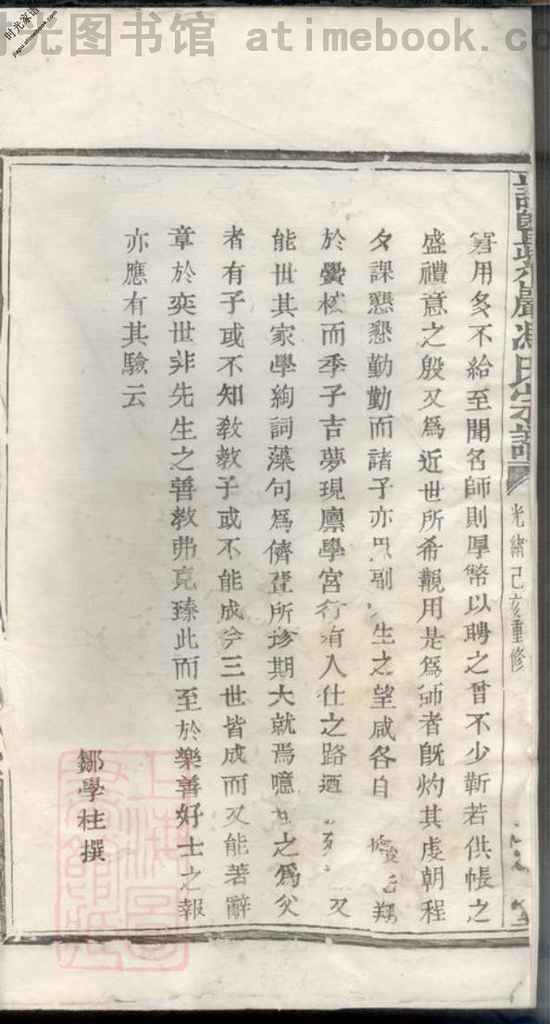 时光图书馆 atimebook.com
时光家谱
諸暨 馮氏宗譜
光緒己亥重修
用多不給至聞名師則厚幣以聘之曾不少靳若供帳之
盛禮意之殷又爲近世所希觀用是爲師者旣灼其虔朝程
夕課懇懇勤勤而諸子亦 副 生之望咸各自 翔
於黌 而季子吉夢現廪學宮行有入仕之路迺 又
能世其家學絢詞藻句爲儕 所 期大就焉噫 之爲父
者有子或不知敎敎子或不能成今三世皆成而又能著辭
章於奕世非先生之善敎弗克臻此而至於樂善好士之報
亦應有其驗云
鄒學柱撰
上海圖